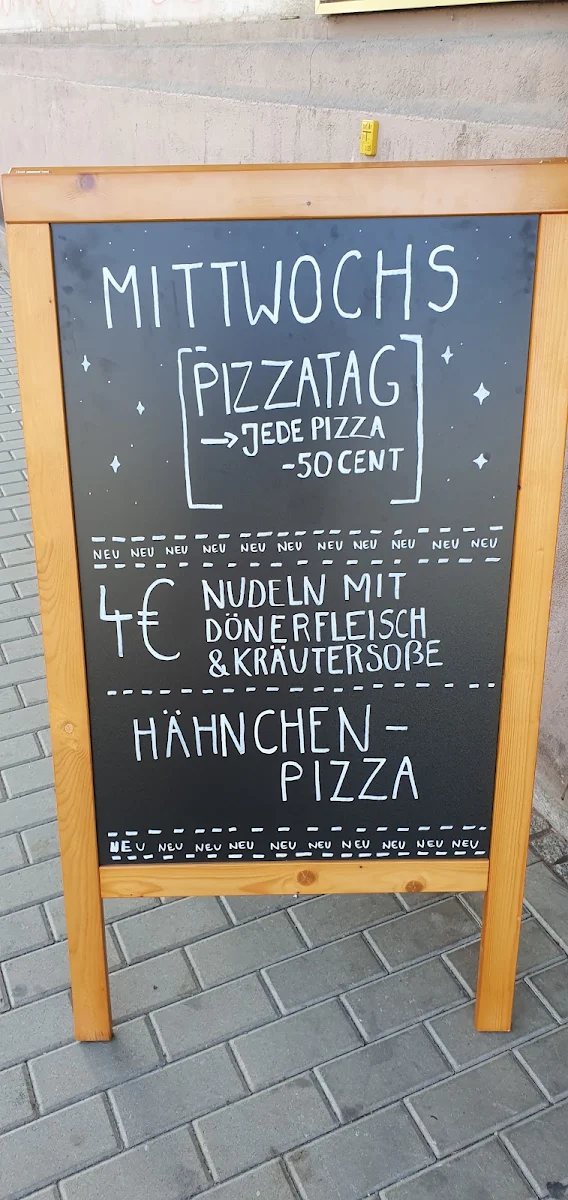 MITTWOCHS
PIZZATAG
→JEDE PIZZA
-50 CENT
NEU NEU NEU NEU NEU NEU NEU NEU NEU NEU NEU
4€ NUDELN MIT
DÖNERFLEISCH
&KRÄUTERSOßE
HÄHNCHEN-
PIZZA
NEU NEU NEU NEU NEU NEU NEU NEU NEU NEU